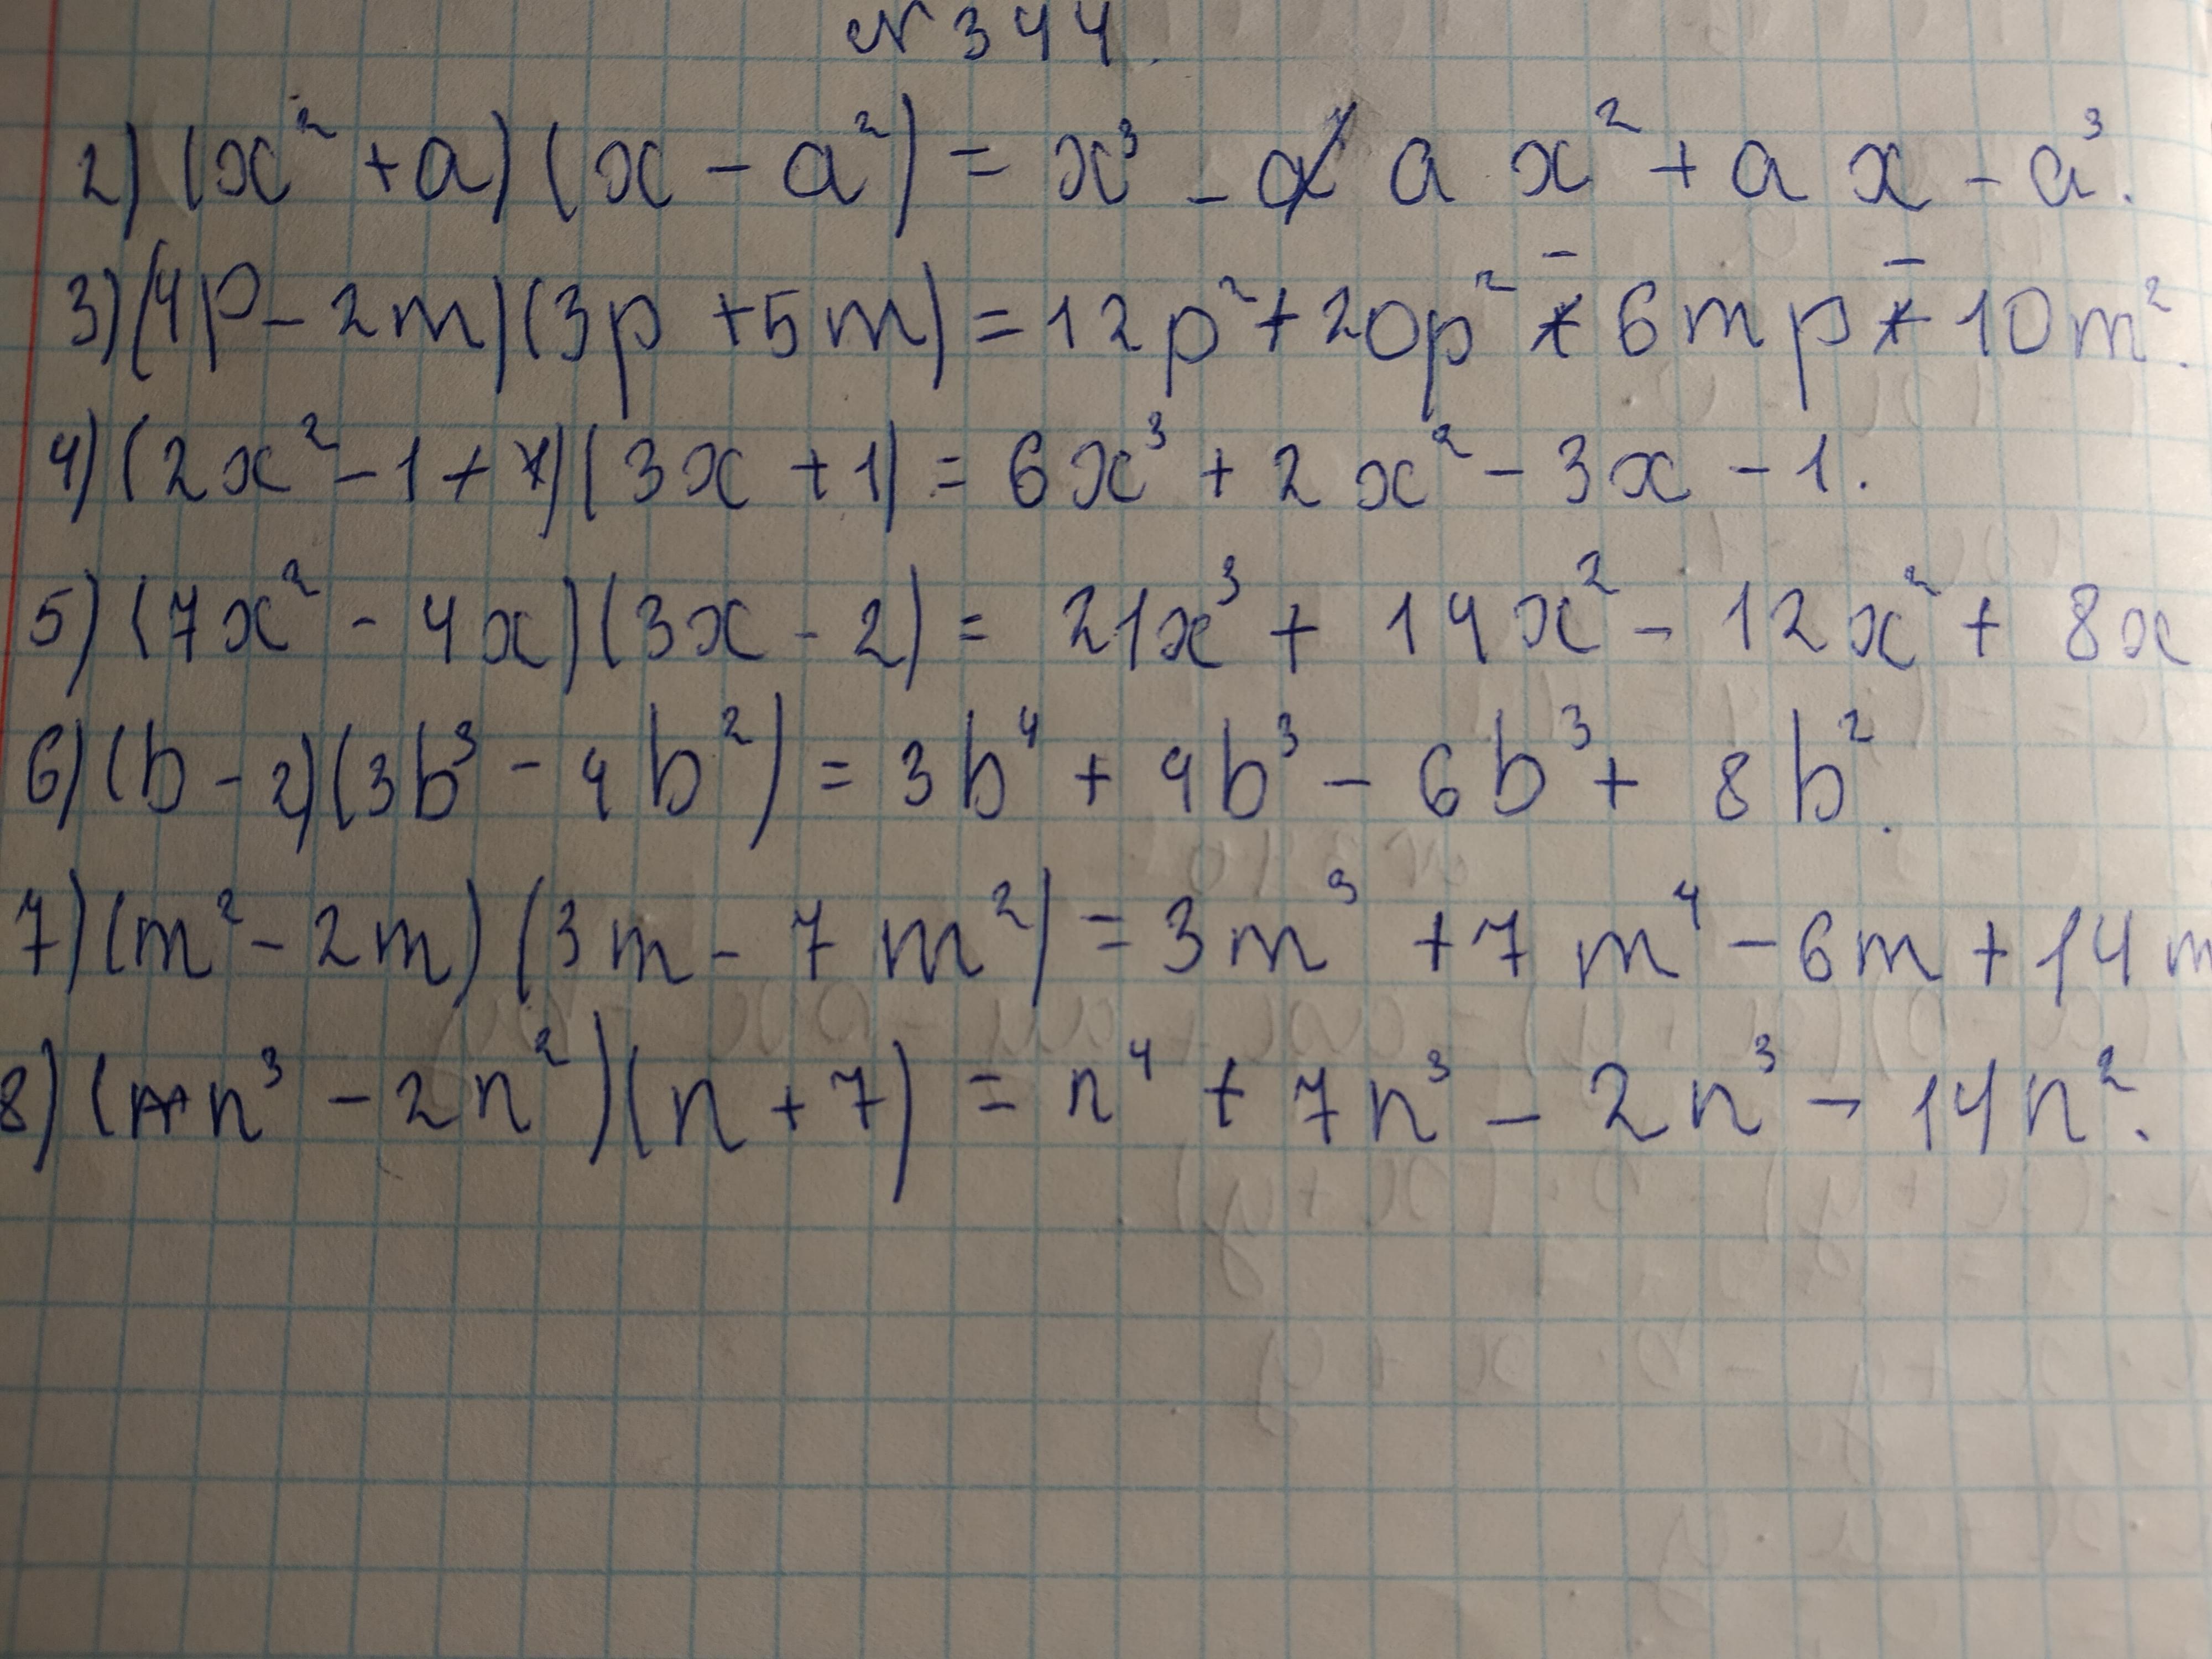 №344.
2) (x² + a)(x - a²) = x³ - a x² + a x - a³.
3) (4p - 2m)(3p + 5m) = 12p² + 20p² - 6mp - 10m².
4) (2x² - 1 + x)(3x + 1) = 6x³ + 2x² - 3x - 1.
5) (7x² - 4x)(3x - 2) = 21x³ + 14x² - 12x² + 8x
6) (b - 2)(3b³ - 4b²) = 3b⁴ + 4b³ - 6b³ + 8b².
7) (m² - 2m)(3m - 7m²) = 3m³ + 7m⁴ - 6m + 14m
8) (n³ - 2n²)(n + 7) = n⁴ + 7n³ - 2n³ - 14n².